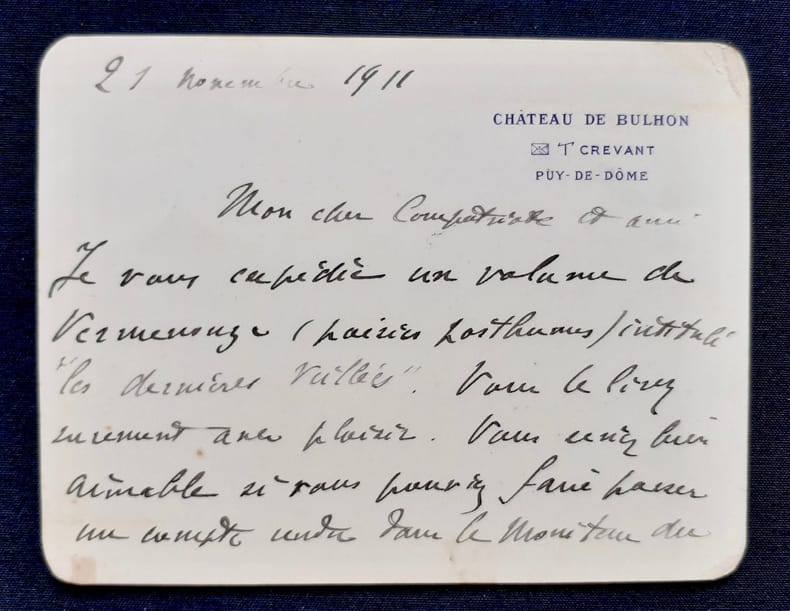 21 novembre 1911
CHÂTEAU DE BULHON
T CREVANT
PUY-DE-DÔME
Mon cher Compatriote et ami
Je vous expédie un volume de
Vermenouze (poésies posthumes) intitulé
"les dernières Veillées". Vous le lirez
surement avec plaisir. Vous seriez bien
aimable si vous pouviez faire passer
un compte rendu dans le Moniteur du